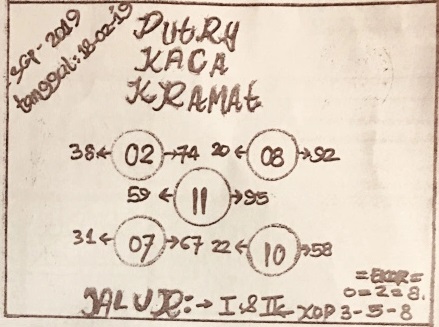 SGP - 2019
tanggal: 18-02-19
PUTRY
KACA
KRAMAT
38 ← 02 → 74 20 ← 08 → 92
59 ← 11 → 95
31 ← 07 → 67 22 ← 10 → 58
= EKOR =
0=2=8.
JALUR: → I & II - XOP 3-5-8